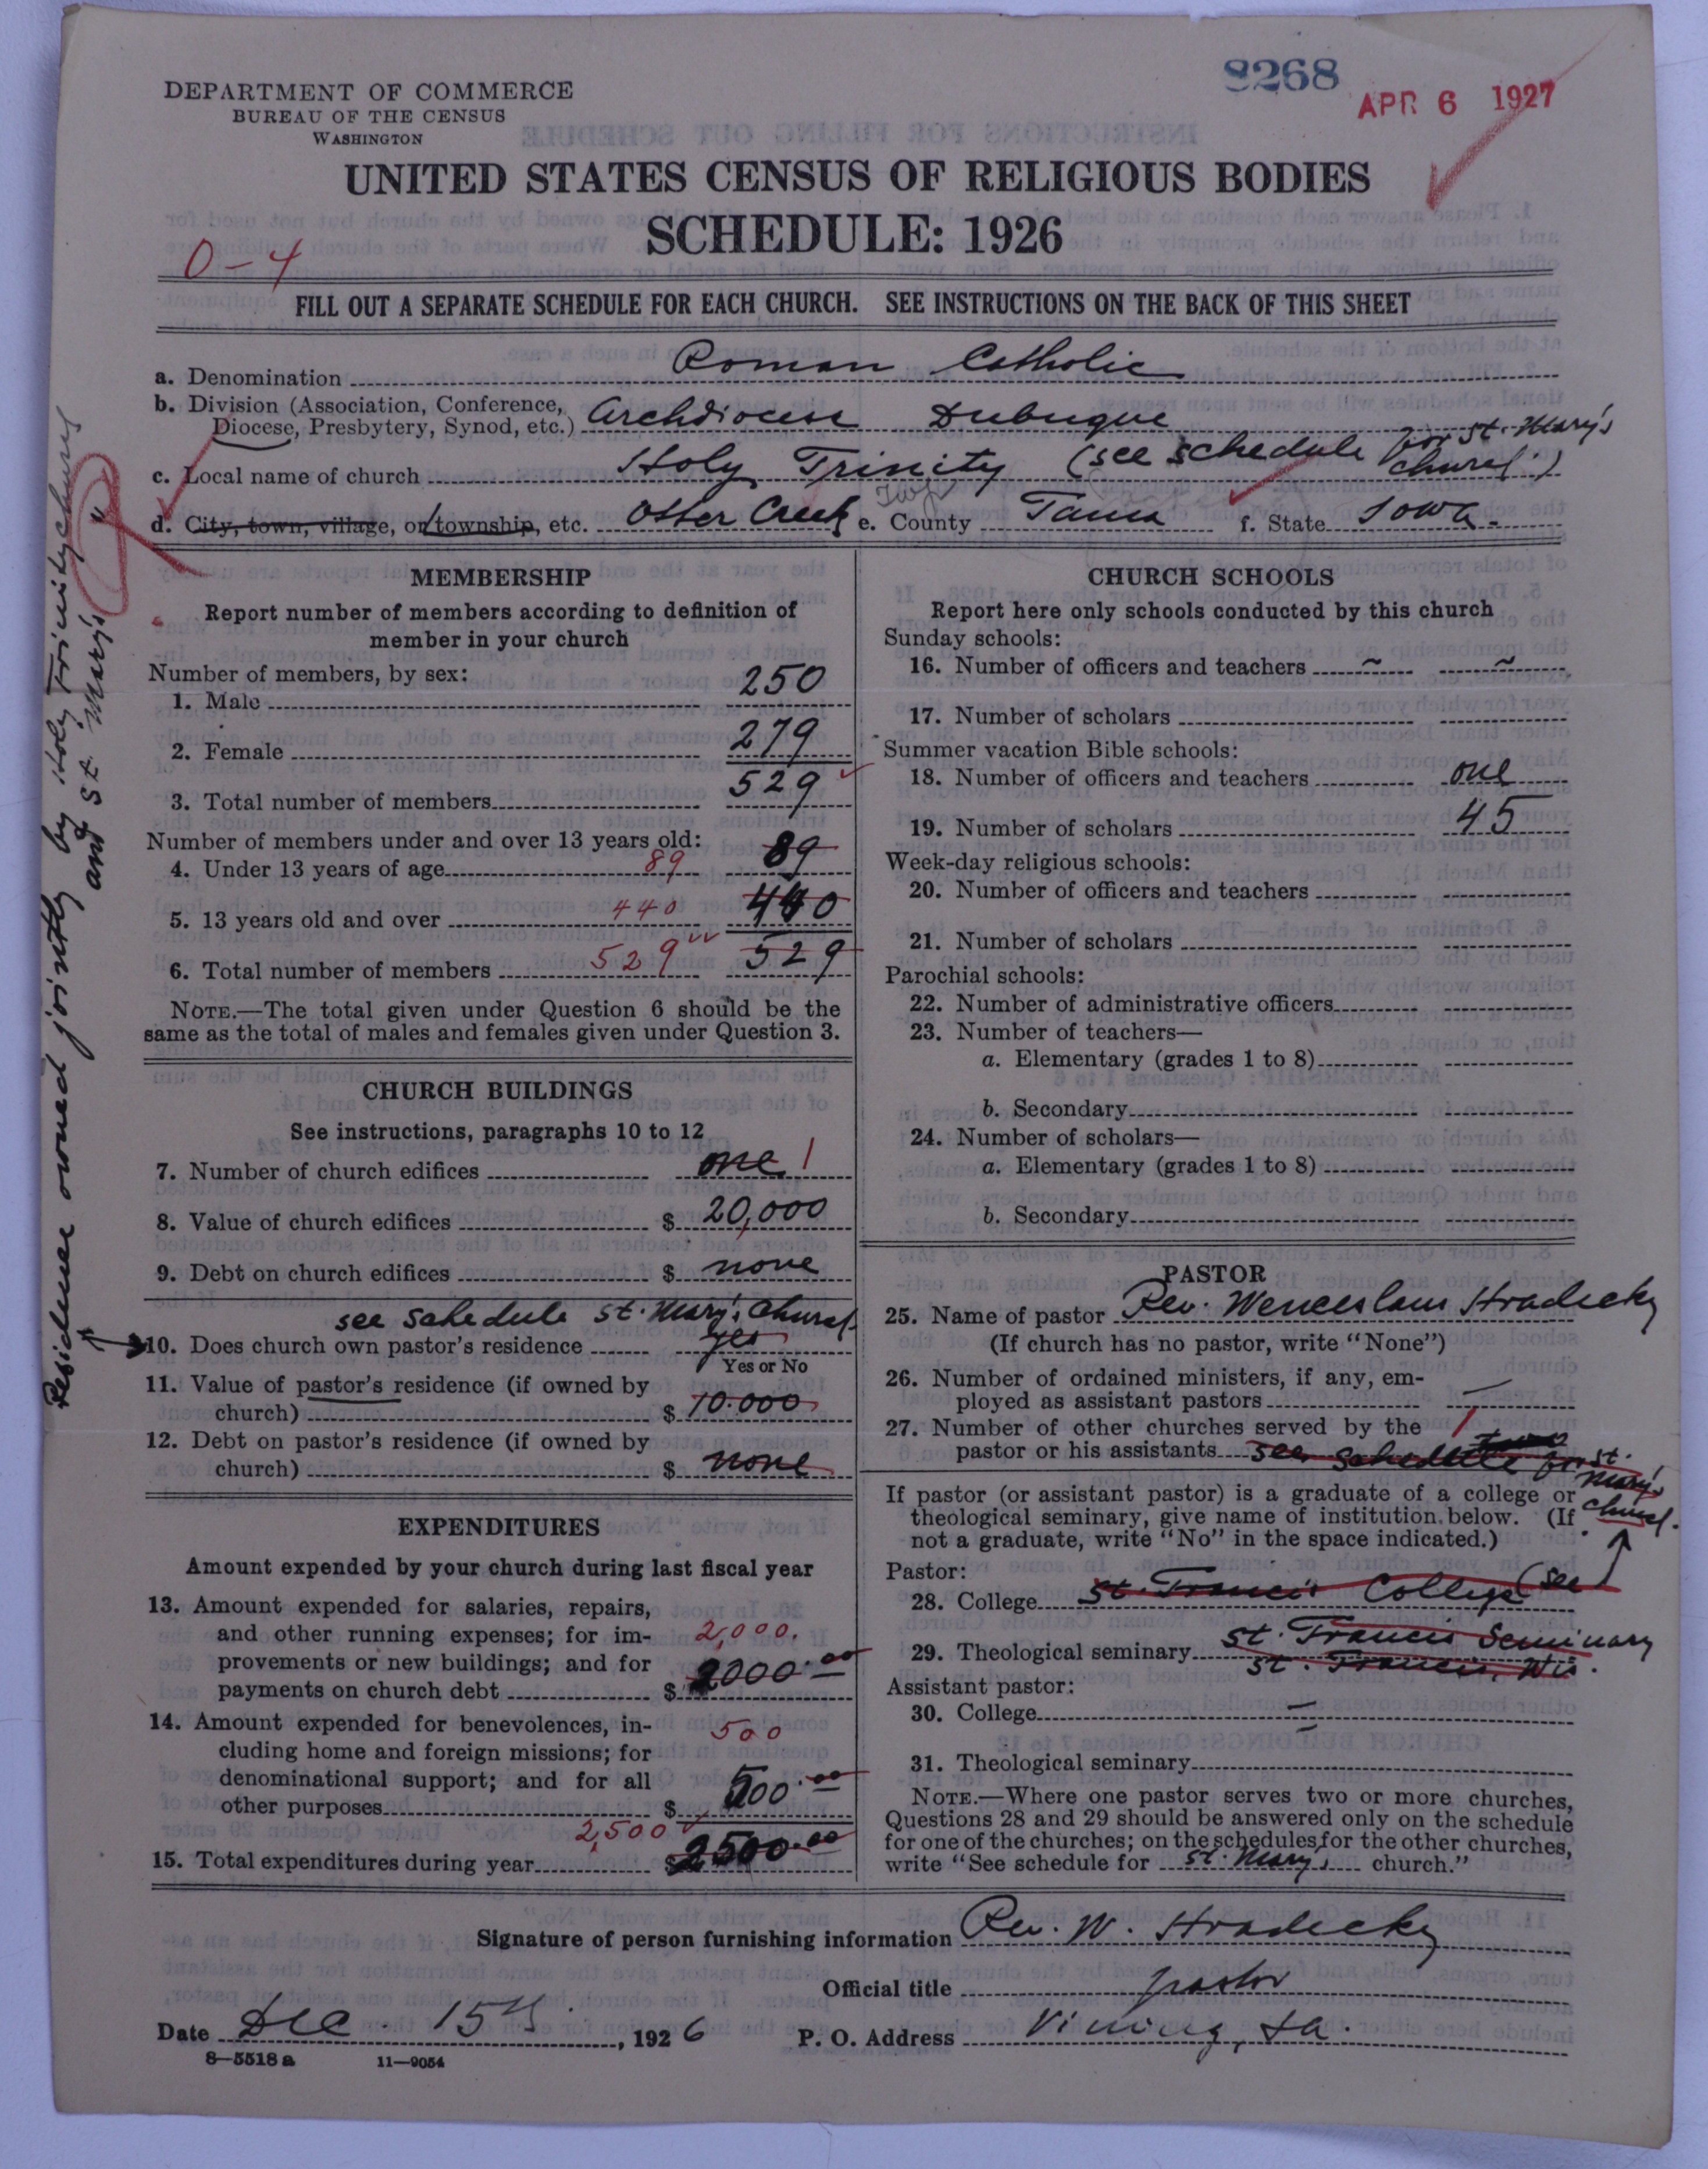 8268
APR 6 1927
DEPARTMENT OF COMMERCE
BUREAU OF THE CENSUS
WASHINGTON
UNITED STATES CENSUS OF RELIGIOUS BODIES
SCHEDULE: 1926
0-4
FILL OUT A SEPARATE SCHEDULE FOR EACH CHURCH. SEE INSTRUCTIONS ON THE BACK OF THIS SHEET
a. Denomination Roman Catholic
b. Division (Association, Conference,
Diocese, Presbytery, Synod, etc.) Archdiocese Dubuque
c. Local name of church Holy Trinity (see schedule for St. Mary's church)
d. City, town, village, or township, etc. Otter Creek Twp e. County Tama f. State Iowa.
Residence owned jointly by Holy Trinity church
and St. Mary's "
MEMBERSHIP
Report number of members according to definition of
member in your church
Number of members, by sex:
1. Male 250
2. Female 279
3. Total number of members 529
Number of members under and over 13 years old:
4. Under 13 years of age 89 89
5. 13 years old and over 440 440
6. Total number of members 529 529
NOTE.—The total given under Question 6 should be the
same as the total of males and females given under Question 3.
CHURCH BUILDINGS
See instructions, paragraphs 10 to 12
7. Number of church edifices one 1
8. Value of church edifices $ 20,000
9. Debt on church edifices $ none
see schedule St. Mary's Church
10. Does church own pastor's residence yes
Yes or No
11. Value of pastor's residence (if owned by
church) $ 10.000
12. Debt on pastor's residence (if owned by
church) $ none
EXPENDITURES
Amount expended by your church during last fiscal year
13. Amount expended for salaries, repairs,
and other running expenses; for im- 2,000.
provements or new buildings; and for
payments on church debt $ 2000.00
14. Amount expended for benevolences, in- 500
cluding home and foreign missions; for
denominational support; and for all
other purposes $ 500.00
2,500
15. Total expenditures during year $ 2500.00
CHURCH SCHOOLS
Report here only schools conducted by this church
Sunday schools:
16. Number of officers and teachers ~ ~
17. Number of scholars
Summer vacation Bible schools:
18. Number of officers and teachers one
19. Number of scholars 45
Week-day religious schools:
20. Number of officers and teachers
21. Number of scholars
Parochial schools:
22. Number of administrative officers
23. Number of teachers—
a. Elementary (grades 1 to 8)
b. Secondary
24. Number of scholars—
a. Elementary (grades 1 to 8)
b. Secondary
PASTOR
25. Name of pastor Rev. Wenceslaus Hradecky
(If church has no pastor, write "None")
26. Number of ordained ministers, if any, em-
ployed as assistant pastors —
27. Number of other churches served by the 1
pastor or his assistants see schedule for St. Mary's church.
If pastor (or assistant pastor) is a graduate of a college or
theological seminary, give name of institution below. (If
not a graduate, write "No" in the space indicated.)
Pastor:
28. College St. Francis College (see
29. Theological seminary St. Francis Seminary
St. Francis, Wis.
Assistant pastor:
30. College —
31. Theological seminary —
NOTE.—Where one pastor serves two or more churches,
Questions 28 and 29 should be answered only on the schedule
for one of the churches; on the schedules for the other churches,
write "See schedule for St. Mary's church."
Signature of person furnishing information Rev. W. Hradecky
Official title pastor
Date Dec. 15th, 1926 P. O. Address Vining, Ia.
8—5518 a 11—9054